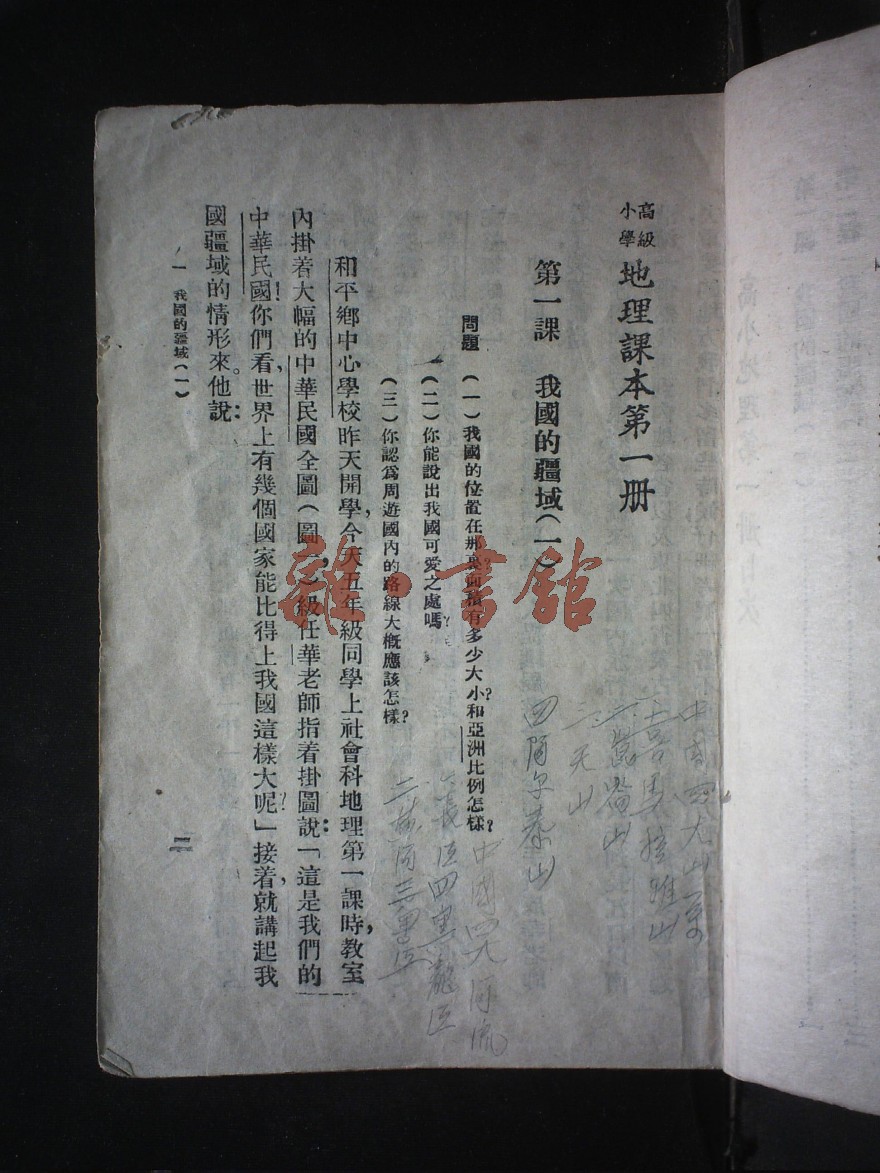 高級小學 地理課本第一册
第一課　我國的疆域（一）
問題　（一）我國的位置在那裏？面積有多少大小？和亞洲比例怎樣？
（二）你能說出我國可愛之處嗎？
（三）你認爲周遊國內的路線大概應該怎樣？
和平鄉中心學校昨天開學，今天五年級同學上社會科地理第一課時，教室
內掛着大幅的中華民國全圖（圖一），級任華老師指着掛圖說：「這是我們的
中華民國！你們看，世界上有幾個國家能比得上我國這樣大呢？」接着，就講起我
國疆域的情形來。他說：
一　我國的疆域（一）
中國四大山
喜馬拉雅山
崑崙山
三 天山
四 阿尔泰山
中國四大河流
雜·書館